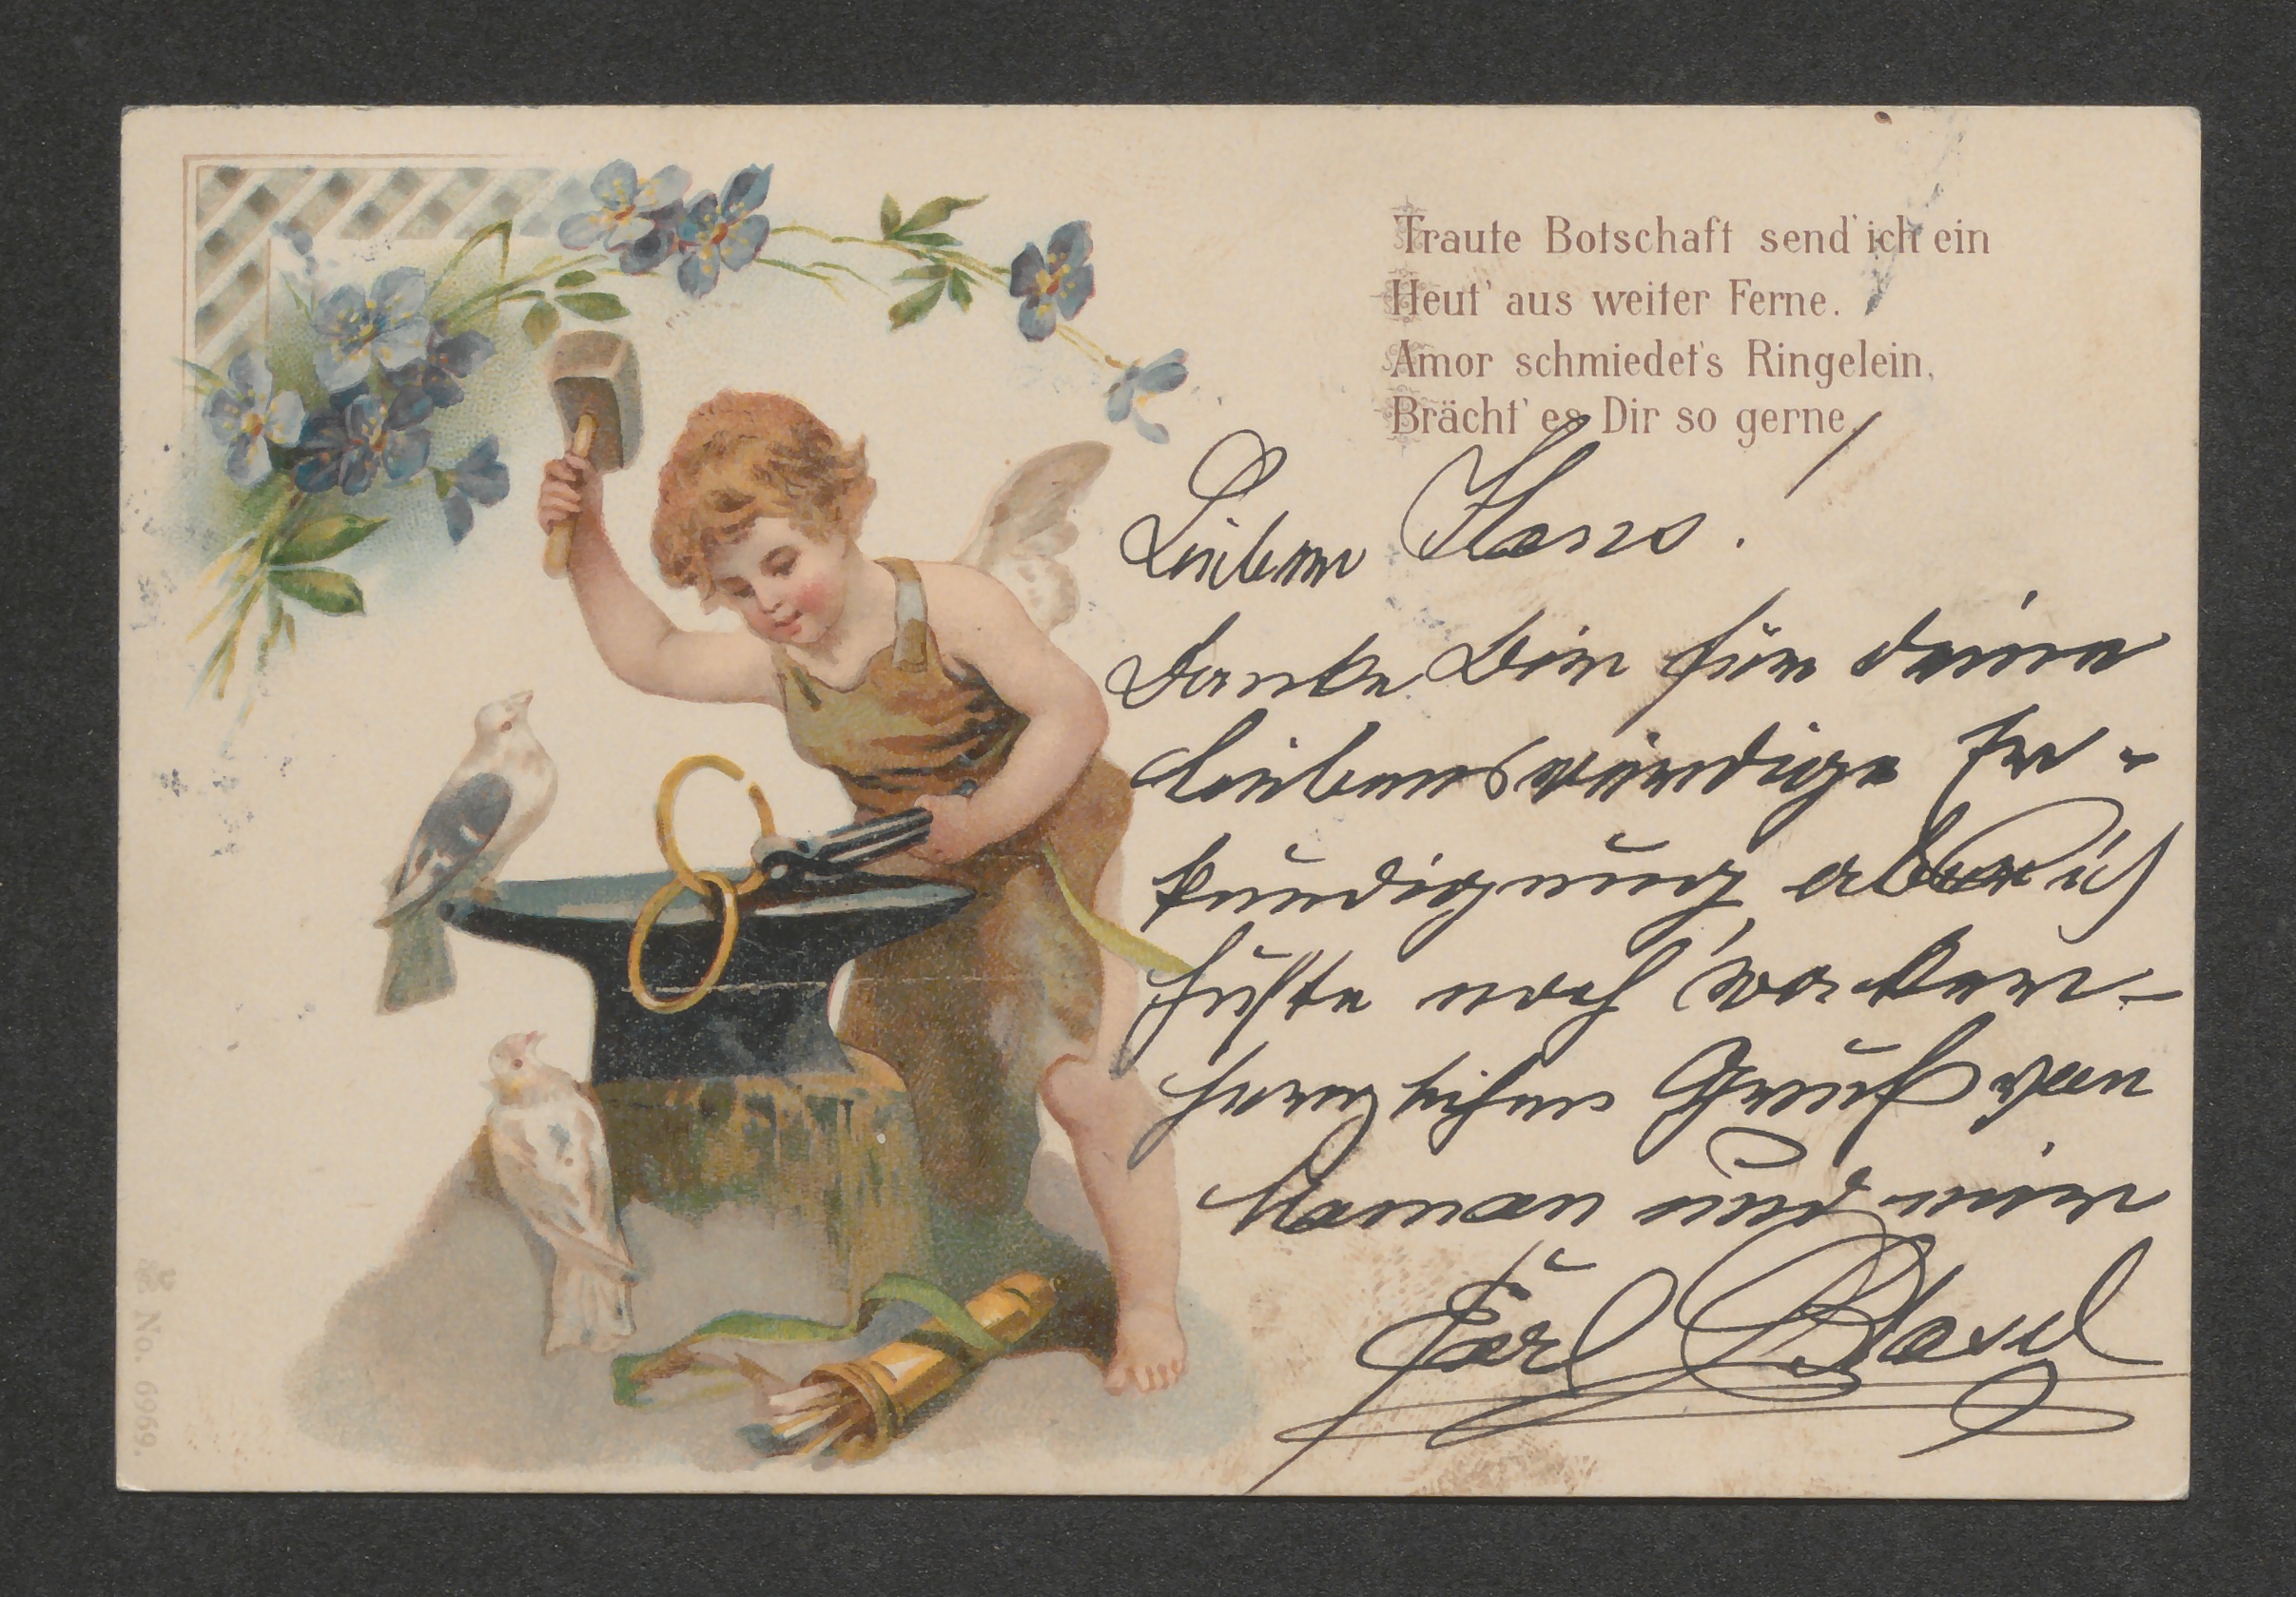 Traute Botschaft send' ich ein
Heut' aus weiter Ferne.
Amor schmiedet's Ringelein,
Brächt' es Dir so gerne.
Lieber Hans!
Danke Dir für deine
liebenswürdige Er-
kundigung, aber ich
huste noch wacker.-
herzlichen Gruß von
Maman und mir
Karl
No. 6969.